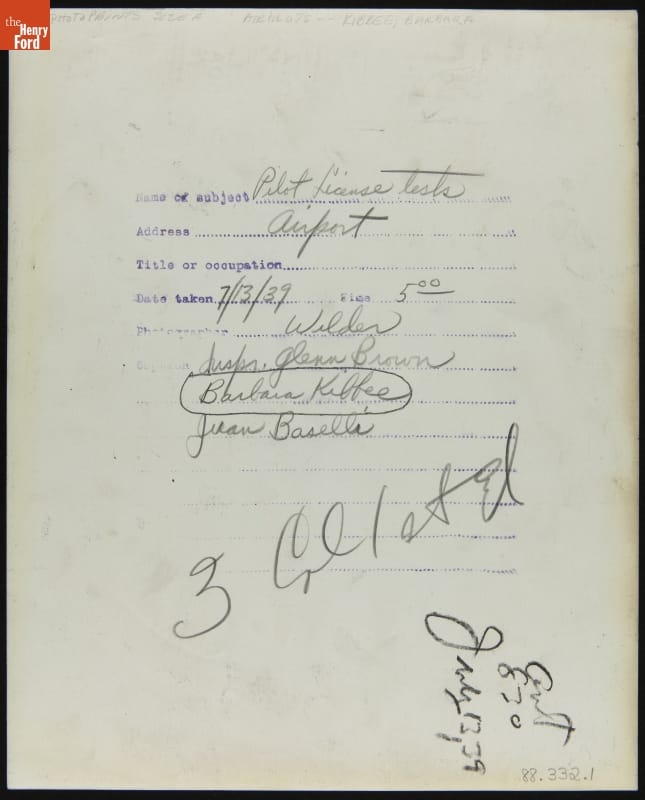 the
Henry
Ford
PHOTOPRINTS SIZE A AIRPILOTS -- KIBBEE, BARBARA
Name of subject Pilot License tests
Address Airport
Title or occupation
Date taken 7/13/39 Time 5 00
Photographer Wilder
Inspr. Glenn Brown
Barbara Kibbee
Juan Baselli
3 Col 1st Ed
July 13, 39
830
88.332.1